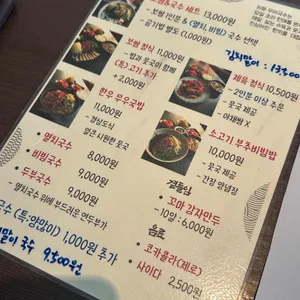 국수 세트 13,000원
- 보쌈 1인분 & (열치, 비빔) 국수 선택
- 공기밥 별도 (1,000원)
보쌈 정식 11,000원
- 밥과 풋국이 함께
(특) 고기 추가
+ 2,000원
한우 우무국밥
11,000원
- 경상도식
얼큰시원한 국
• 멸치국수 8,000원
• 비빔국수 9,000원
• 두부국수 9,000원
- 멸치국수 위에 부드러운 연두부가
국수 (특:양많이) 1,000원 추가
말이 국수 9,500원
김치말이 : 13,500
제육 정식 10,500원
- 2인분 이상 주문
- 풋국 제공
- 야채쌈 X
소고기 부추비빔밥
10,000원
- 풋국 제공
- 간장 양념장
곁들임
꼬마 감자만두
- 10알 : 6,000원
음료
코카콜라(제로)
사이다 2,500원